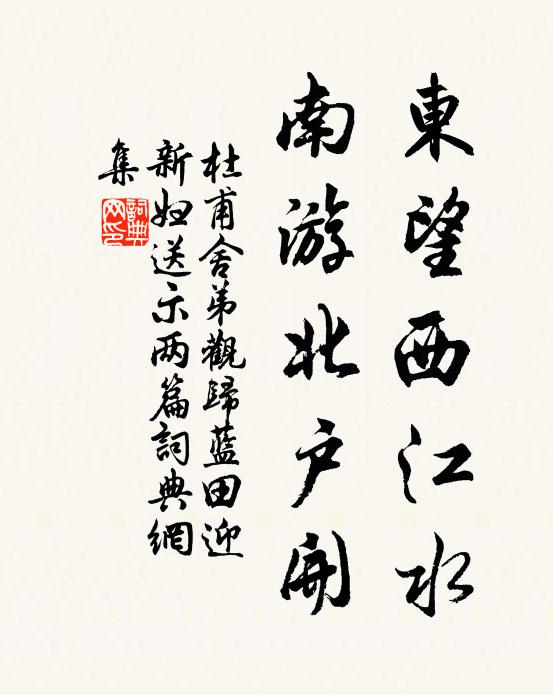 東望西江水
南游北户開
杜甫舍弟觀歸藍田迎
新妇送示两篇詞典網
集
詞典
网印